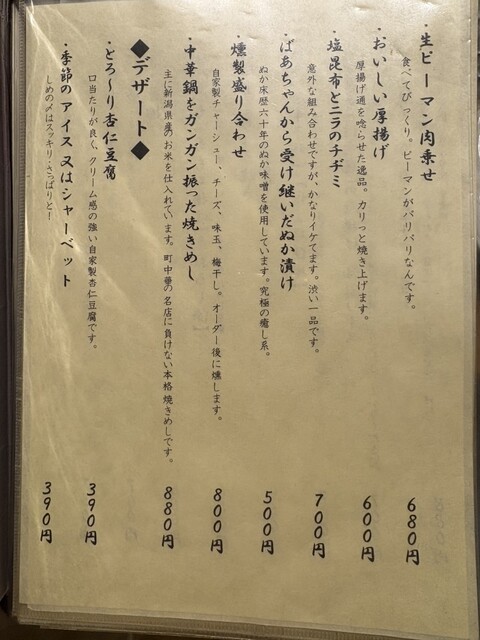 ・生ピーマン肉乗せ 680円
食べてびっくり。ピーマンがバリバリなんです。
・おいしい厚揚げ 600円
厚揚げ通を唸らせた逸品。カリっと焼き上げます。
・塩昆布とニラのチヂミ 700円
意外な組み合わせですが、かなりイケてます。渋い一品です。
・ばあちゃんから受け継いだぬか漬け 500円
ぬか床歴六十年のぬか味噌を使用しています。究極の癒し系。
・燻製盛り合わせ 800円
自家製チャーシュー、チーズ、味玉、梅干し。オーダー後に燻します。
・中華鍋をガンガン振った焼きめし 880円
主に新潟県産のお米を仕入れています。町中華の名店に負けない本格焼きめしです。
◆デザート◆
・とろ～り杏仁豆腐 390円
口当たりが良く、クリーム感の強い自家製杏仁豆腐です。
・季節のアイス又はシャーベット 390円
しめの〆はスッキリ・さっぱりと！